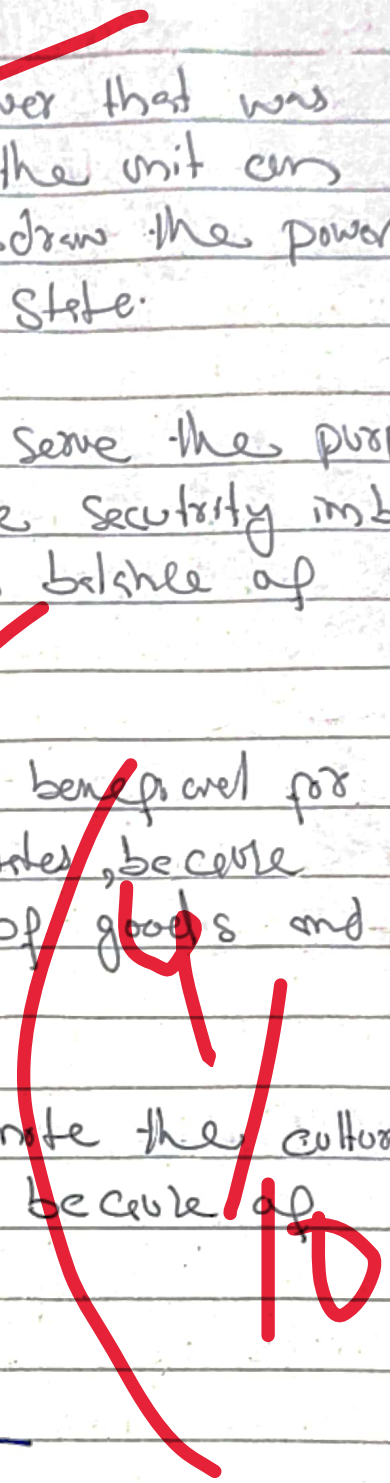 ver that was
the unit can
draw the power
State.
serve the pur
e secutrity imb
balance of
beneficial for
ates, because
of goods and
mote the cultur
because of
4/10